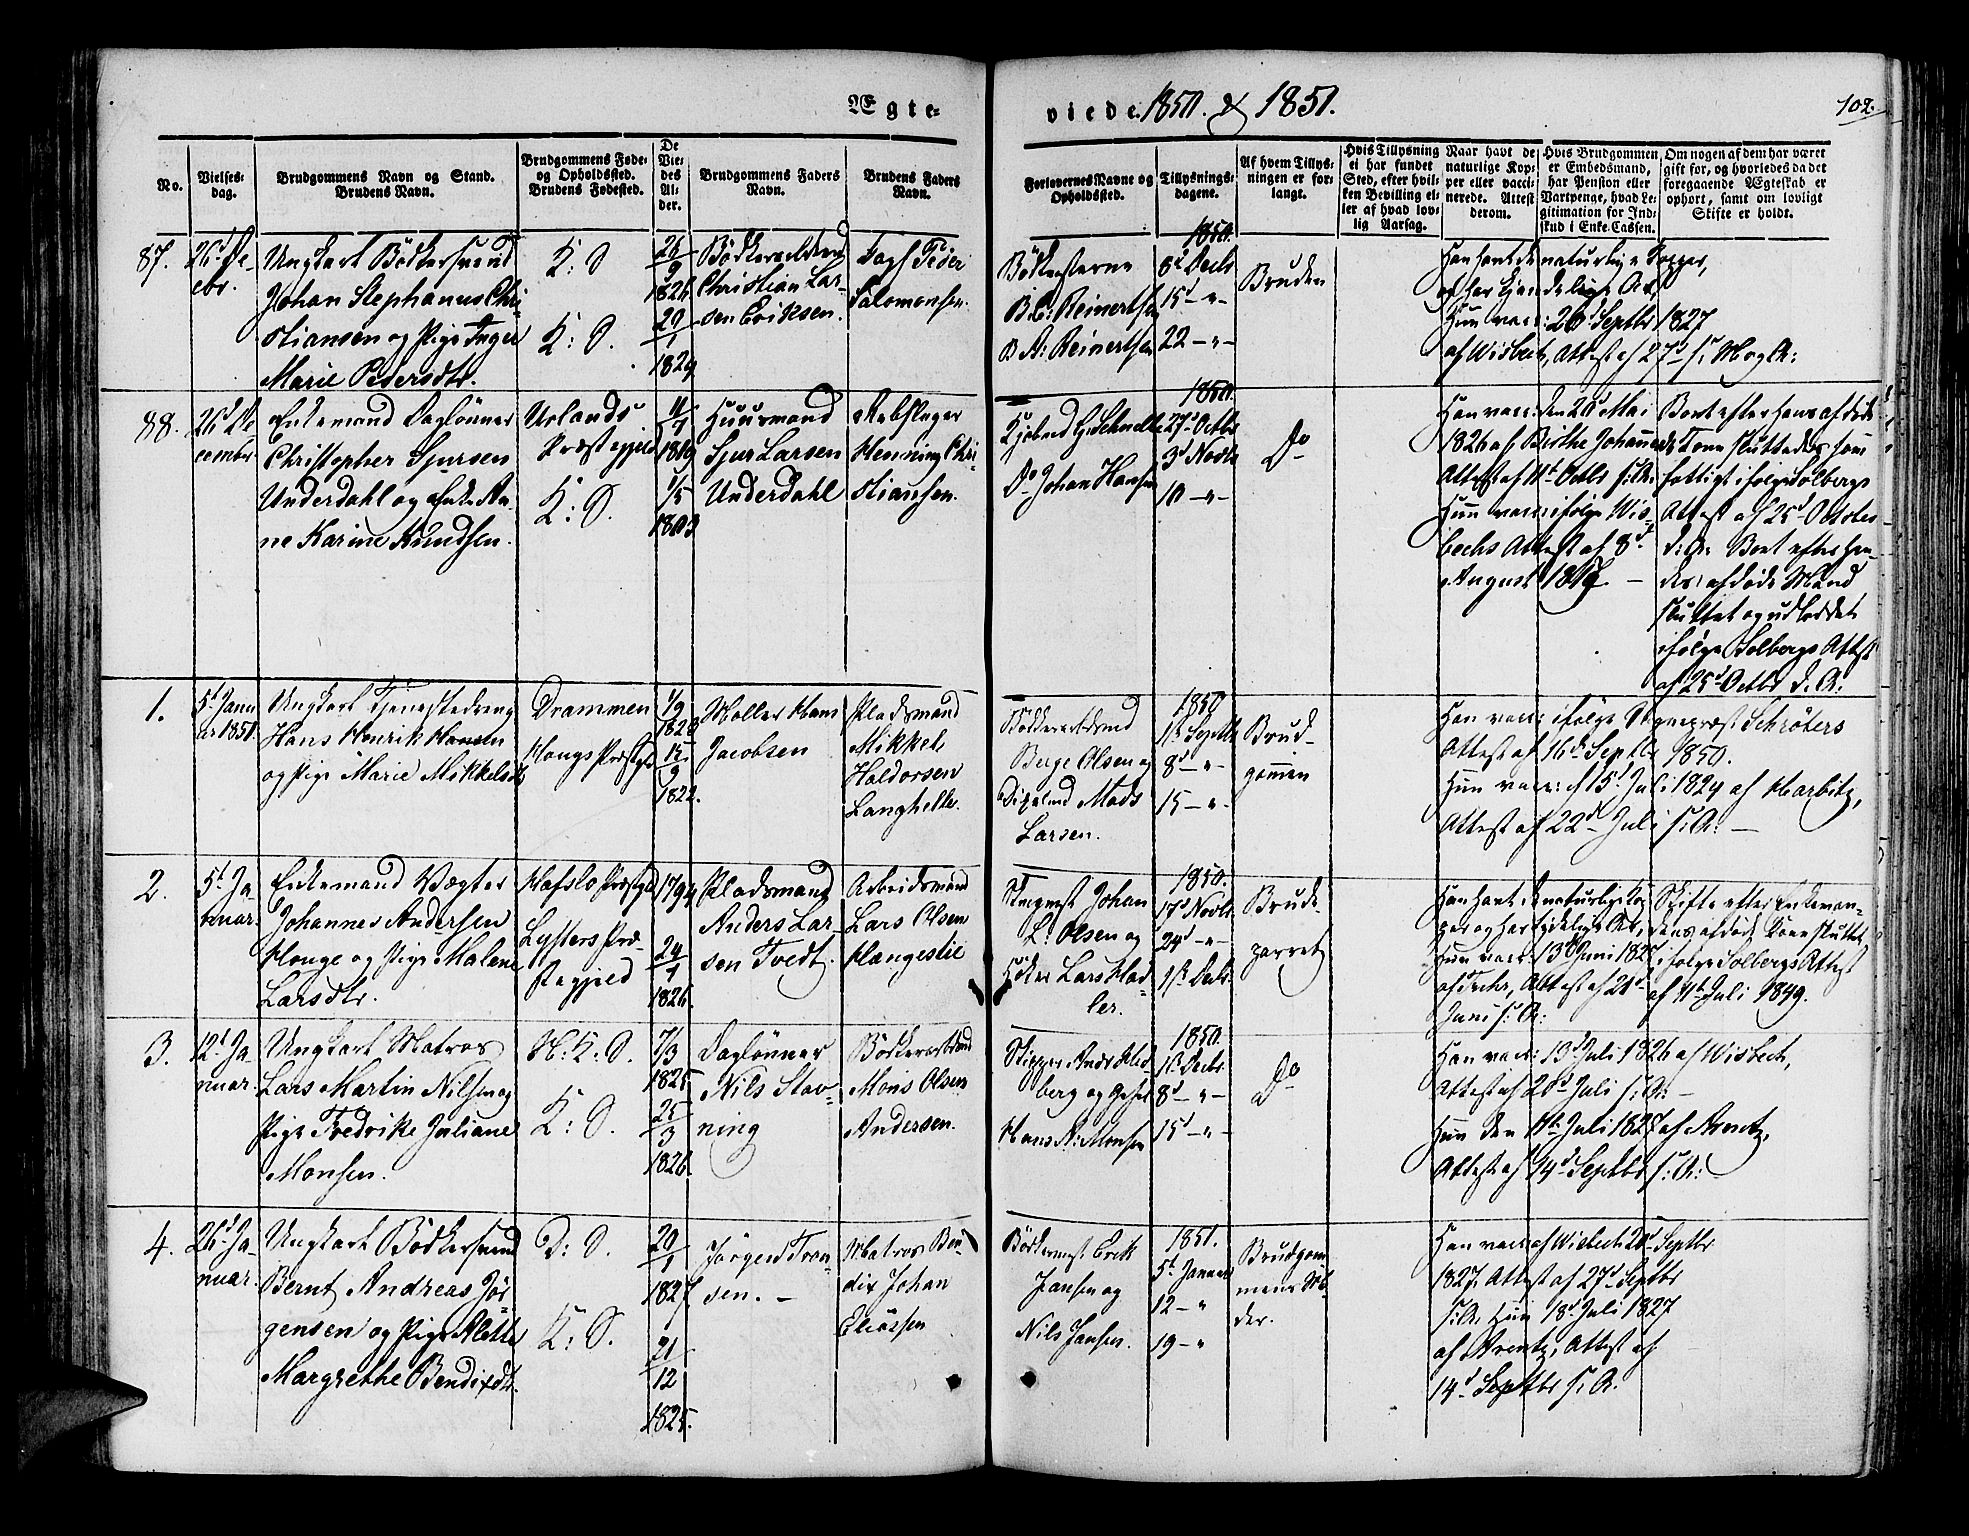 Ægte-
viede 1850. & 1851.
102.
No.
Vielses-
dag.
Brudgommens Navn og Stand.
Brudens Navn.
Brudgommens Føde-
og Opholdssted.
Brudens Fødested.
De
Vie-
des
Al-
der.
Brudgommens Faders
Navn.
Brudens Faders
Navn.
Forlovernes Navne og
Opholdssted.
Tillysnings-
dagene.
Af hvem Tillys-
ningen er for-
langt.
Hvis Tillysning
ei har fundet
Sted, efter hvil-
ken Bevilling el-
ler af hvad lov-
lig Aarsag.
Naar havt de
naturlige Kop-
per eller vacci-
nerede. Attest
derom.
Hvis Brudgommen
er Embedsmand,
har Pension eller
Vartpenge, hvad Le-
gitimation for Ind-
skud i Enke-Cassen.
Om nogen af dem har været
gift før, og hvorledes da det
foregaaende Ægteskab er
ophørt, samt om lovligt
Skifte er holdt.
87.
26d De-
cbr.
Ungkarl Bödkersvend
Johan Stephanus Chri-
stiansen og Pige Inger
Marie Petersdtr.
K: S
K: S.
26/9
1826
29/1
1829
Bödkersvend
Christian Lar-
sen Eriksen.
Dags Peder
Salomonsen.
1850.
Bödkerstrene
B. C. Reinertsen
B A: Reinertsen
8d Decbr
15d -"-
22 -"-
Bruden
Han havt de naturlige Kopper,
og har kjendelige Ar,
Hun vacc: 20d Septbr 1827
af Wisbech, Attest af 27d s: Mog A:
88.
26d De-
cembr.
Enkemand Daglönner
Christopher Sjursen
Underdahl og Enke An-
ne Karine Knudsen.
Urlands
Præstegjeld
K: S.
11/7
1819
1/5
1803
Huusmand
Sjur Larsen
Underdahl
Rebslager
Henning Chri-
stiansen.
1850.
Kjöbmd G. Schnelle
Do Johan Hansen
27d Octbr
3d Novbr
10 -"-
Do
Han vacc: den 20d Mai
1826 af Birthe Johannesd
Attest af 11t Octbr s: A:
Hun vacc: ifölge Wis-
bechs Attest af 8d
August 1817. -
Boet efter hans afdöde
Kone sluttedes som
fattigt ifölge Solbergs
Attest af 25d October
d: A: Boet efter hen-
des afdöde Mand
sluttet og udloddet
ifölge Solbergs Attest
af 25d Octbr d: A:
1.
5t Janu
ar 1851.
Ungkarl Tjenestedreng
Hans Henrik Hansen
og Pige Marie Mikkelsdtr
Drammen
Hougs Præstgd
1/9
1828
15/9
1822.
Möller Hans
Jacobsen
Pladsmand
Mikkel
Haldorsen
Langhelle.
1850
Bödkersvend
Berge Olsen og
Mads
Larsen.
1st Septbr
8d -"-
15 -"-
Brud-
gommen
Han vacc: ifölge Sognepræst Schröters
Attest af 16d Septbr 1850.
Hun vacc: d 15d Juli 1829 af Harbitz,
Attest af 22d Juli s: A: -
2.
5t Ja-
nuar.
Enkemand Vægter
Johannes Andersen
Houge og Pige Malene
Larsdtr.
Hafslo Præstgd
Lysters Præ-
stegjeld
1794
24/1
1826.
Pladsmand
Anders Lar-
sen Tvedt.
Arbeidsmand
Lars Olsen
Hængestie
1850.
Johan
L: Olsen og
Lars
17d Novbr
24d -"-
1st Decbr.
Brude-
parret
Han havt de naturlige Kop-
per og har tydelige Ar,
Hun vacc: 13d Juni 182
Attest af 21d
Juni s: A:
Skifte efter Enkeman-
dens afdöde Kone sluttet
ifölge Solbergs Attest
af 11t Juli 1849.
3.
12d Ja-
nuar.
Ungkarl Matros
Lars Martin Nilsen og
Pige Fredrike Juliane
Monsen.
N: K: S.
K: S.
7/3
1825
25/3
1826.
Daglönner
Nils Stav-
ning
Bödkersvend
Mons Olsen
Andersen.
1850.
Skipper Anders
berg og
Hans A: Monsen
1st Decbr
8d -"-
15d -"-
Do
Han vacc: 13d Juli 1826 af Wisbech,
Attest af 20d Juli s: A: -
Hun den 11t Juli 1827 af Arentz,
Attest af 14d Septbr s: A:
4.
26d Ja-
nuar.
Ungkarl Bödkersvend
Bernt Andreas Jör-
gensen og Pige Alette
Margrethe Bendixdtr.
D: S.
K: S.
20/1
1827.
21/12
1825.
Jörgen Tron-
sen. -
Matros Ben-
dix Johan
Eliassen
1851.
Bödkermst Erik
Jansen og
Nils Jansen.
5t Januar
12 - "
19 - "
Brudgom-
mens Mo-
der.
Han vacc: af Wisbech 20d Septbr
1827. Attest af 27d Septbr
s: A. Hun 18d Juli 1827
af Arentz, Attest af
14d Septbr s: A.